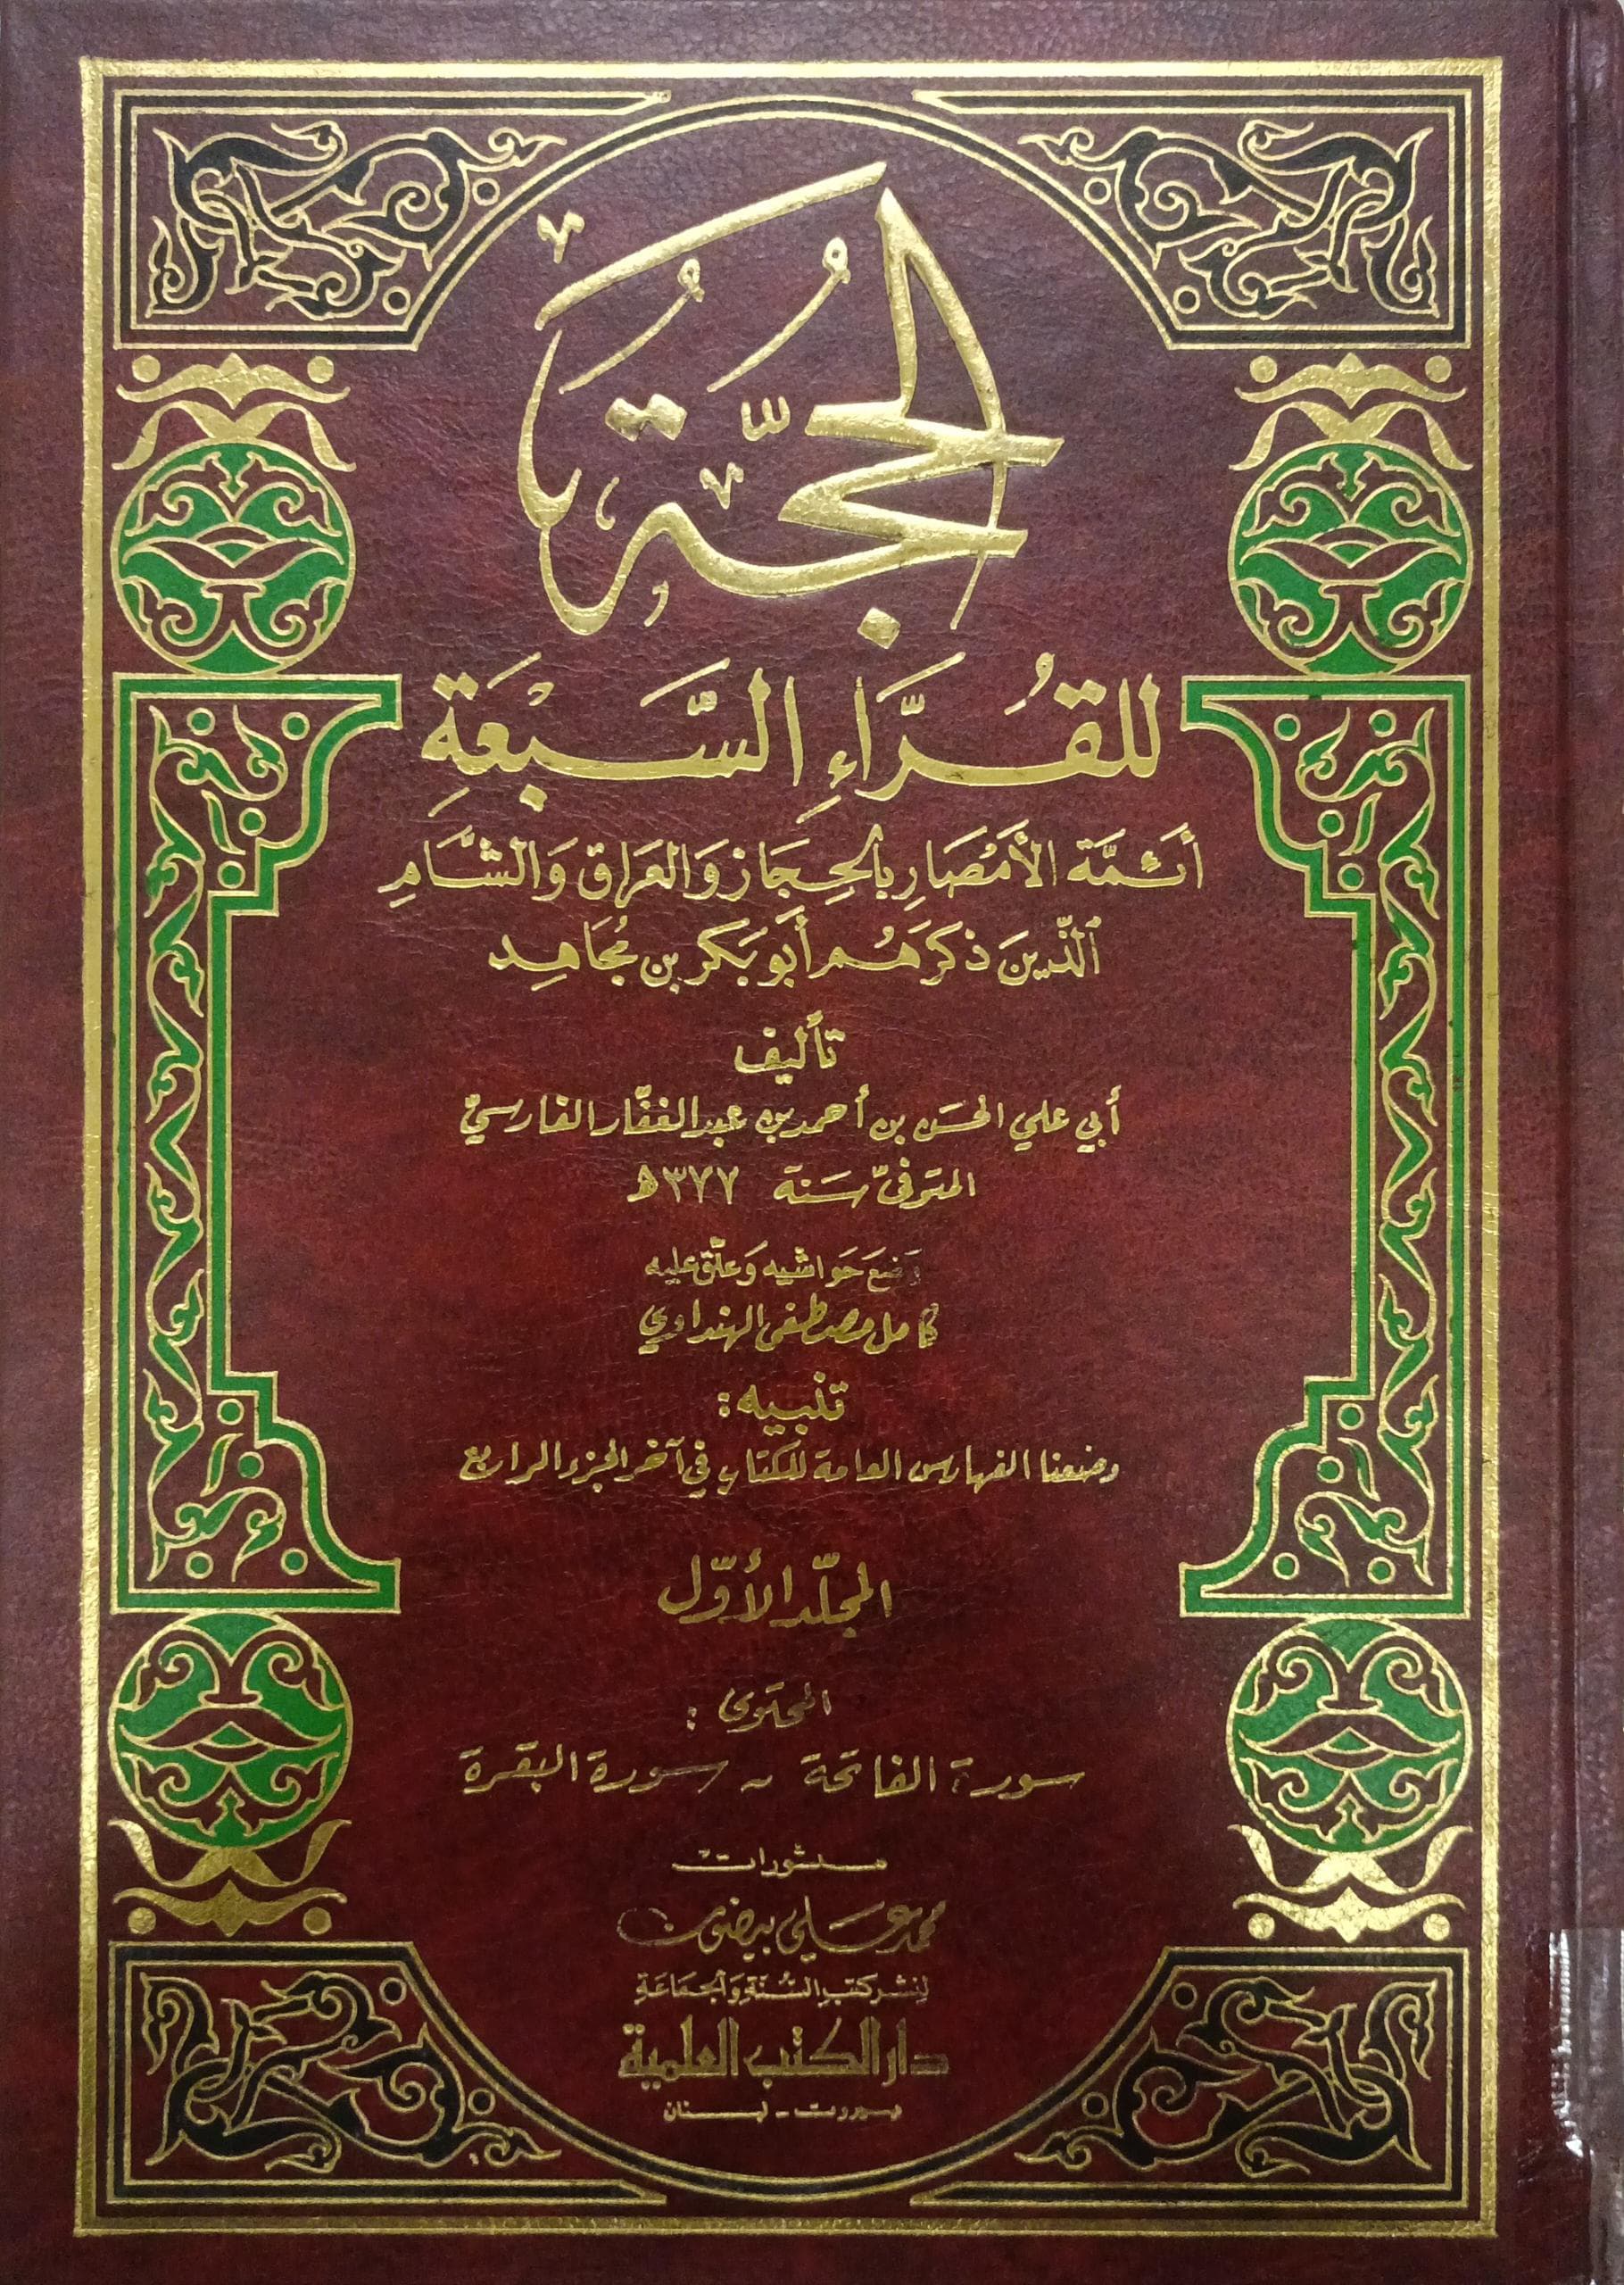 الحُجَّةُ
للقُرَّاءِ السَّبْعَةِ
أَئِمَّة الأَمْصَارِ بِالحِجَاز وَالعَرَاق وَالشَّام
الَّذينَ ذكرَهُم أَبو بَكر بن مُجَاهِد
تأليف
أبي علي الحسَن بن أحمد بن عبد الغفّار الفارسيّ
المتوفىّ سَنة ٣٧٧ه
وَضعَ حَواشيه وَعلّق عليه
كامل مصطفى الهنداوي
تنبيه :
وضعنا الفهارس العامة للكتاب في آخر الجزء الرابع
المجلّد الأوّل
المحتوى :
سورة الفاتحة - سورة البقرة
منشورات
محمد علي بيضون
لنشر كتب السُّنة والجماعة
دار الكتب العلمية
بيروت - لبنان